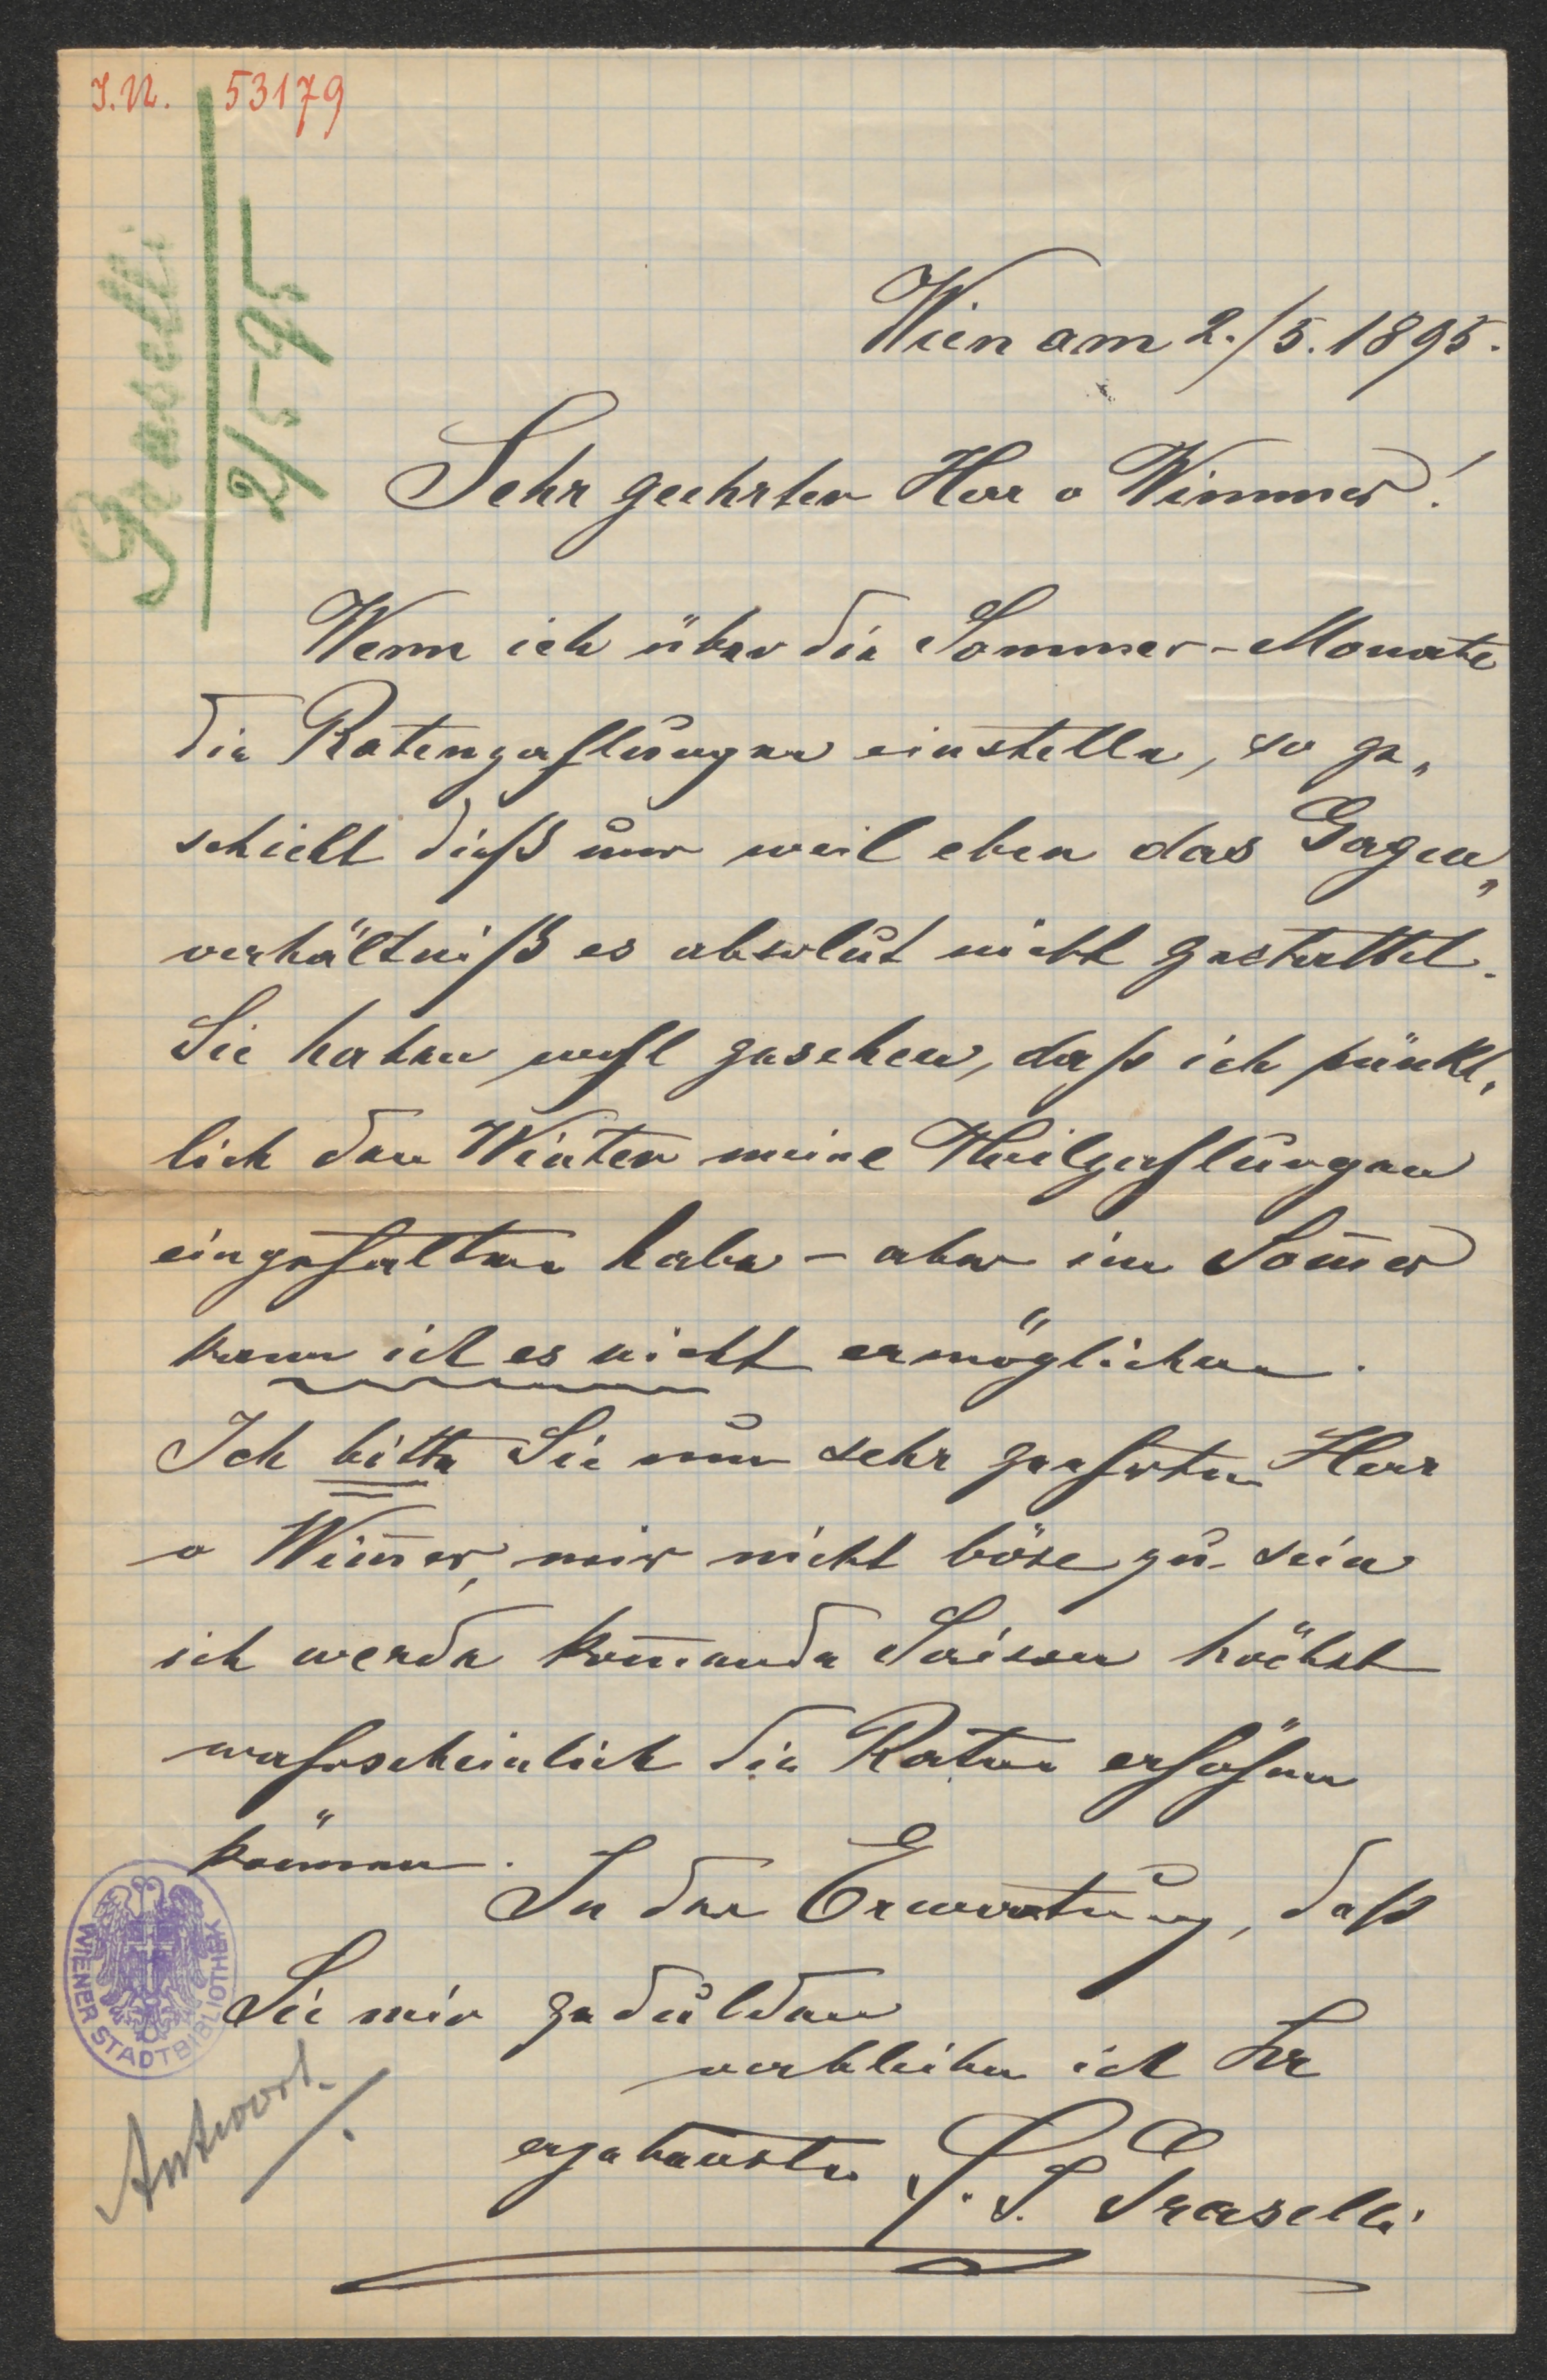 I.N. 53179
Graselli
2/5-95
Wien am 2./5. 1895.
Sehr geehrter Herr v Wimmer!
Wenn ich über die Sommer-Monate
die Ratenzahlungen einstelle, so ge„
schieht dieß nur weil eben das Gagen„
verhältniß es absolut nicht gestattet.
Sie haben wohl gesehen, daß ich pünkt„
lich den Winter meine Theilzahlungen
eingehalten habe – aber im Som̅er
kann ich es nicht ermöglichen.
Ich bitte Sie nun sehr geehrter Herr
v Wim̅er, mir nicht böse zu sein
ich werde kom̅ende Saison höchst
wahrscheinlich die Raten erhöhen
können.
In der Erwartung, daß
Sie mir gedulden
verbleibe ich Ihr
ergebenster S. S. Graselli
WIENER STADTBIBLIOTHEK
Antwort.